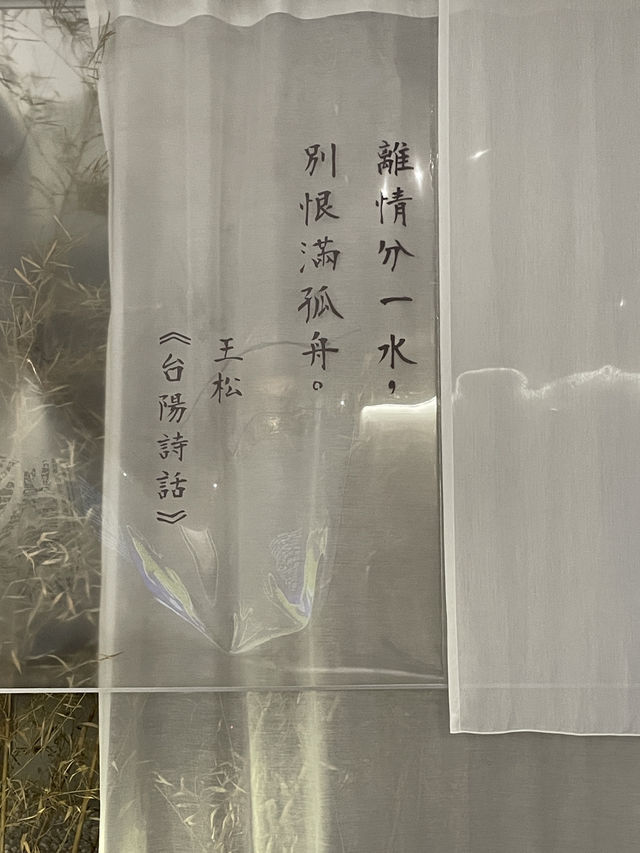 離情分一水，
別恨滿孤舟。
王松
《台陽詩話》